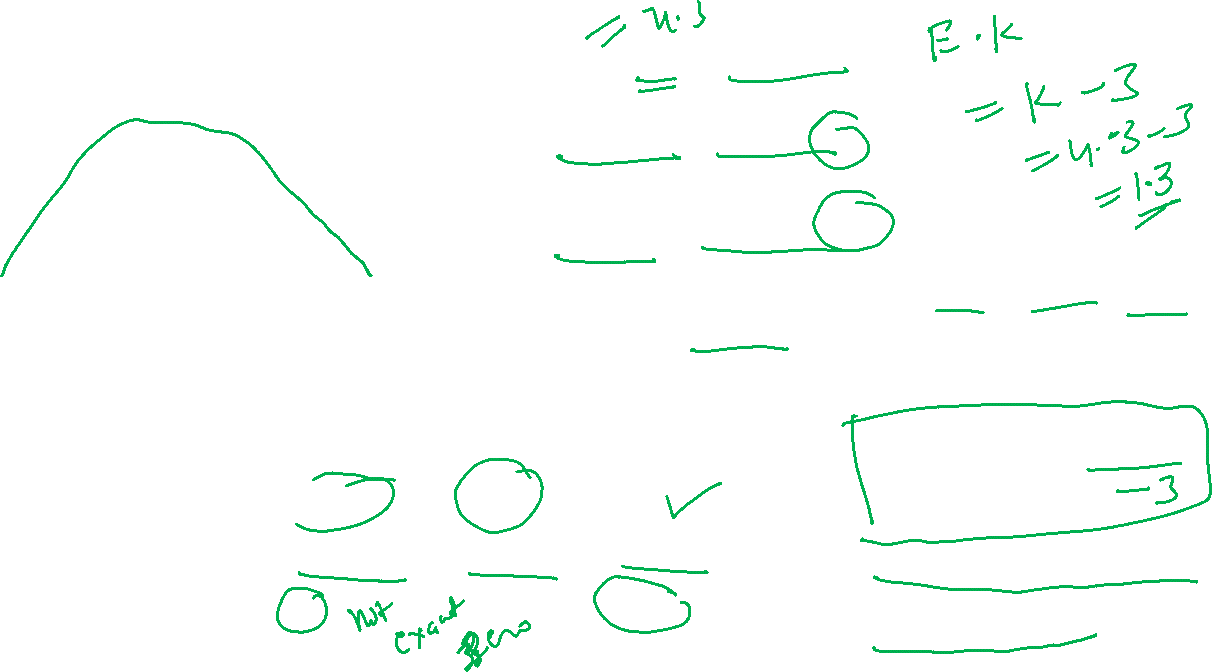 = 4.3
E.K
= K - 3
= 4.3 - 3
= 1.3
- 3
not exact zero